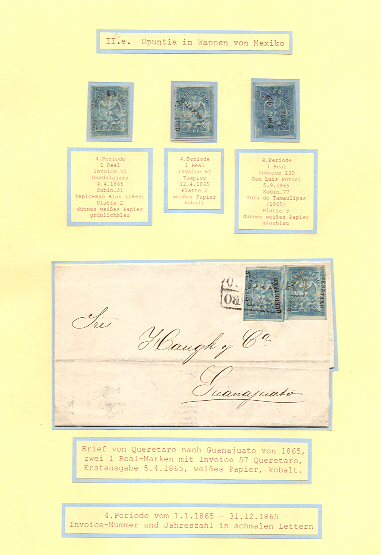 II.e. Opuntia in Wappen von Mexiko
4.Periode
1 Real
Invoice
Guadalajara
4.4.1865
Subin.21
Tepic-San Blas (1865)
Platte 2
dünnes weißes Papier
grünlichblau
4.Periode
1 Real
Invoice
Tampico
12.4.1865
Platte
weißes Papier
kobalt
4.Periode
1 Real
Invoice
San Luis Potosi
5.9.1865
Subin.77
Tula de Tamaulipas
(1865)
Platte 3
dünnes weißes Papier
graublau
QUERETARO
Sres
Haugk y Ca
Guanajuato
Brief von Queretaro nach Guanajuato von 1865,
zwei 1 Real-Marken mit Invoice 57 Queretaro,
Erstausgabe 5.4.1865, weißes Papier, kobalt.
4.Periode vom 1.1.1865 - 31.12.1865
Invoice-Nummer und Jahreszahl in schmalen Lettern